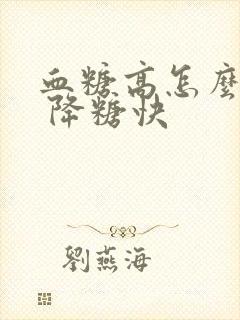 血糖高怎麼
降糖快
劉燕海